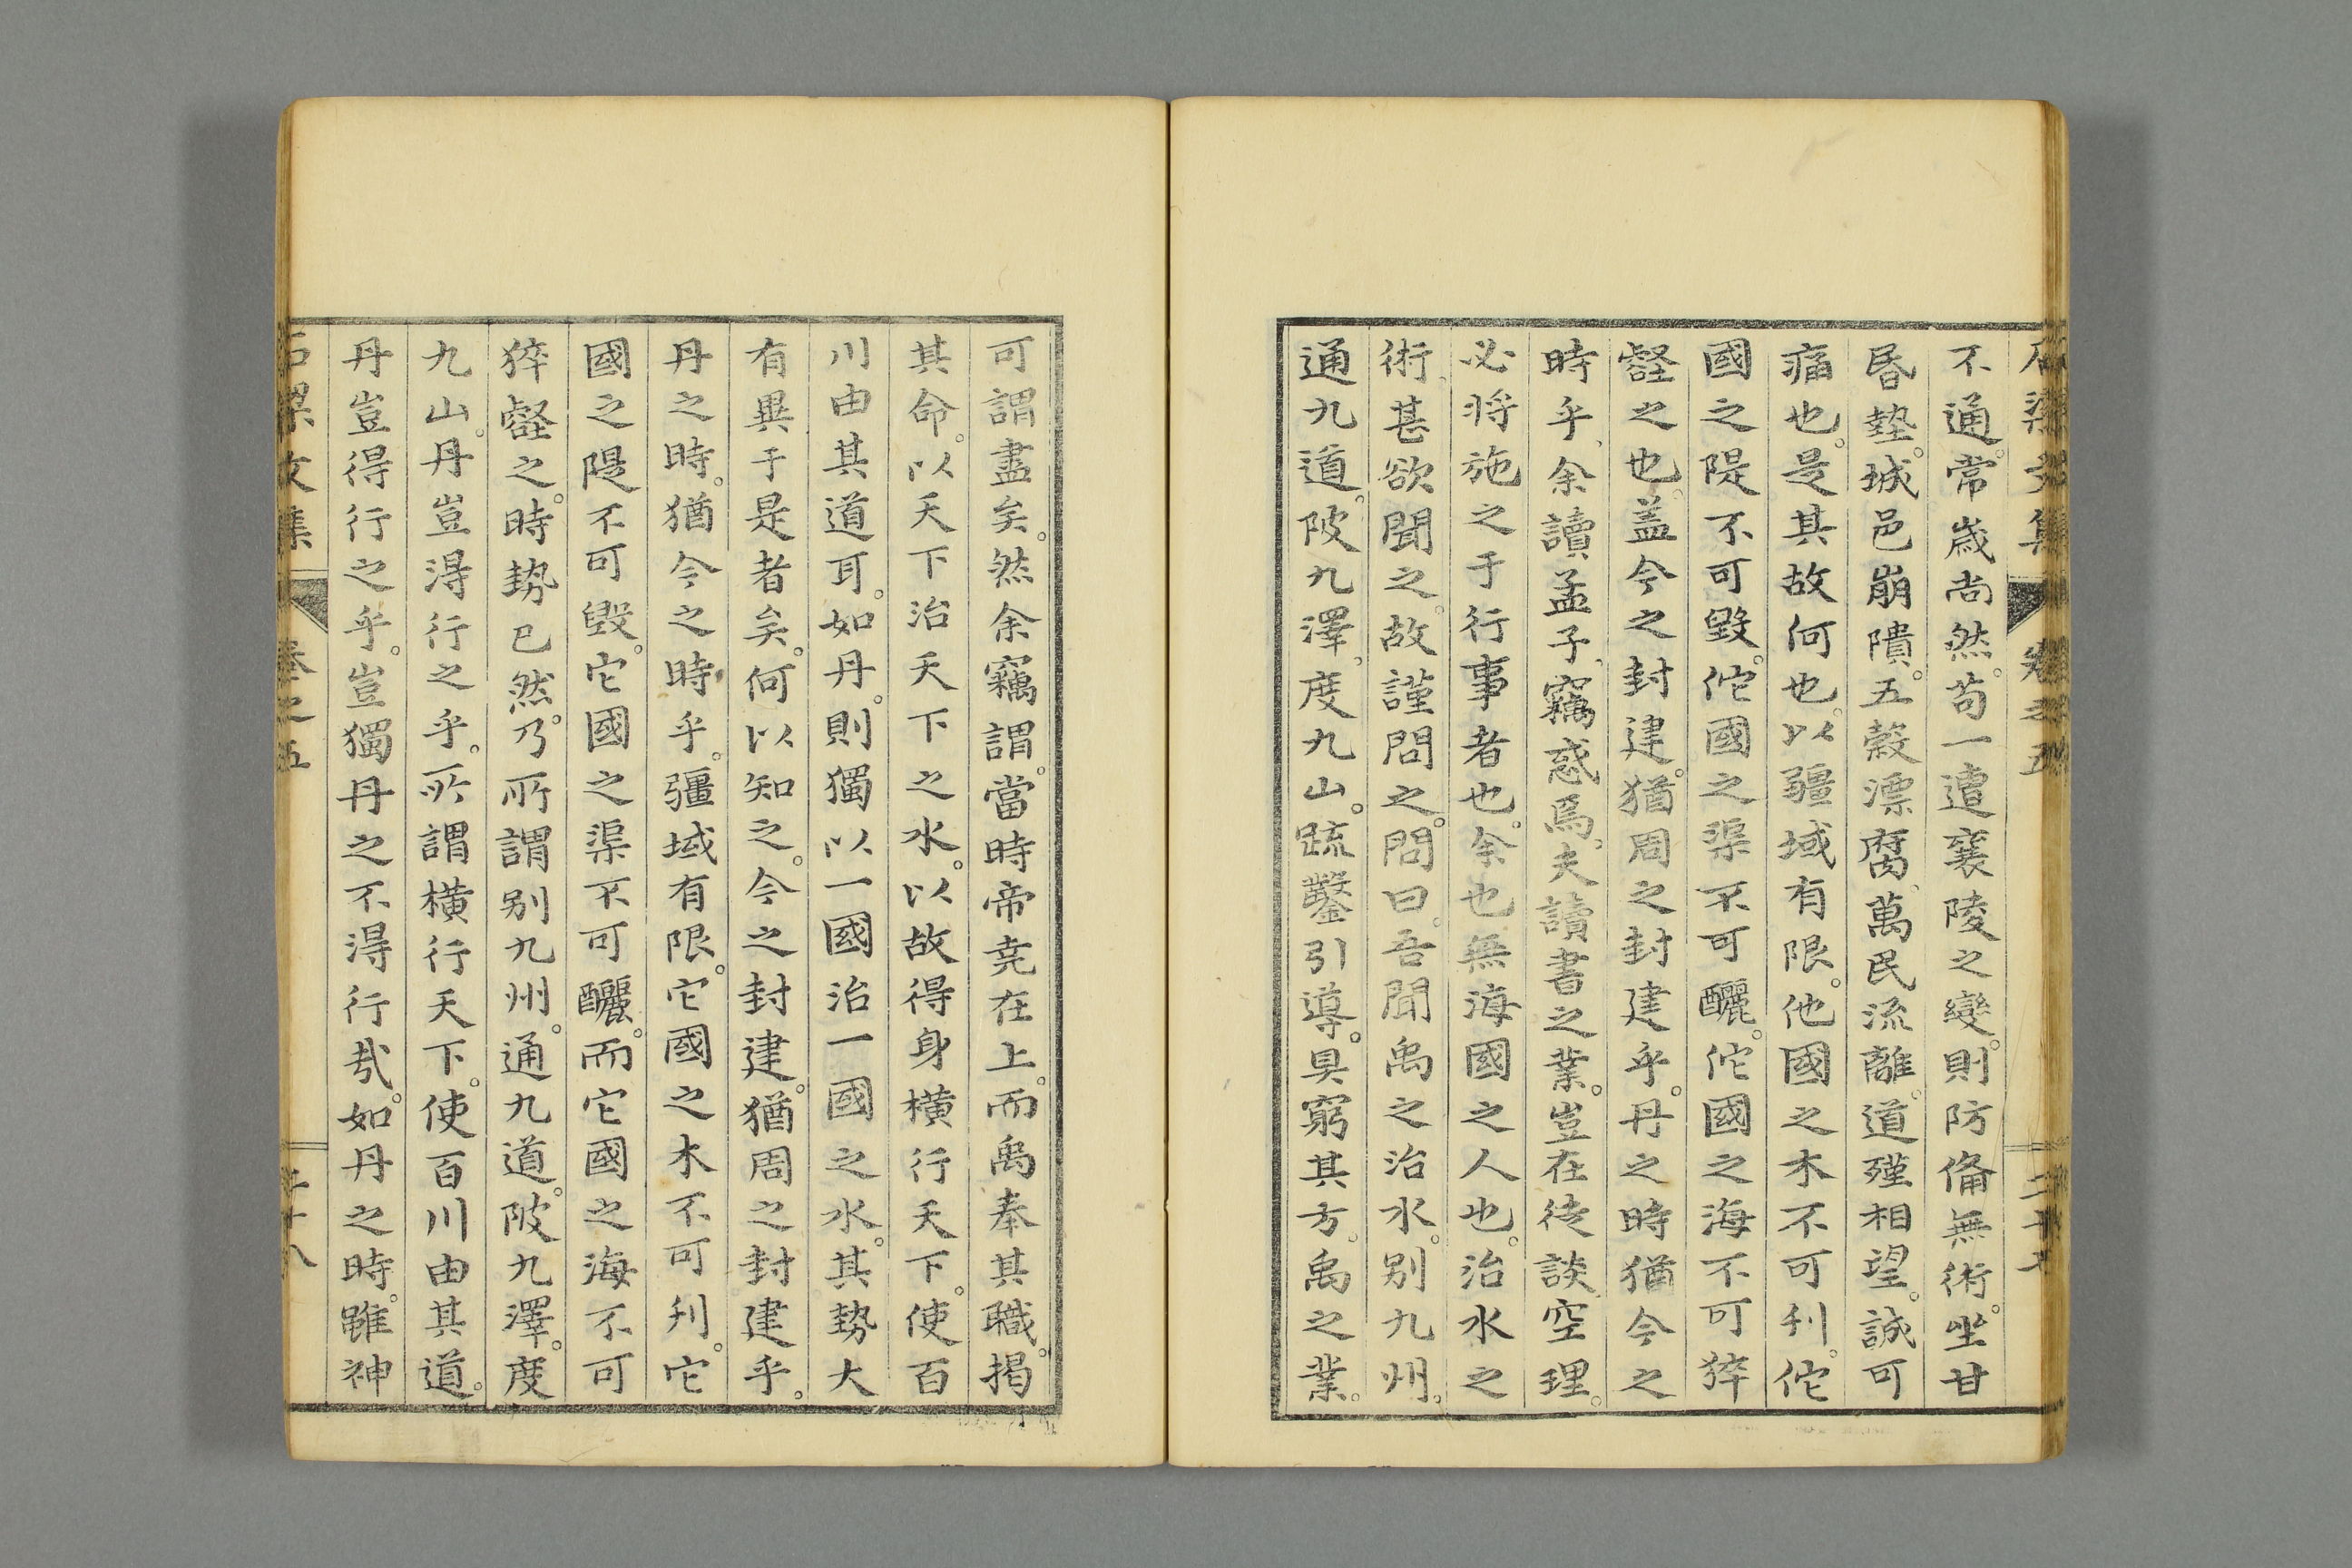 不通。常歲尚然。苟一遭襄陵之變。則防俻無術。坐甘
昏墊。城邑崩隤。五穀漂腐。萬民流離。道殣相望。誠可
痛也。是其故何也。以疆域有限。他國之木不可刋。佗
國之隄不可毀。佗國之渠不可釃。佗國之海不可猝
壑之也。盖今之封建。猶周之封建乎。丹之時猶今之
時乎、余讀孟子、竊惑焉。夫讀書之業。豈在徒談空理。
必將施之于行事者也。余也無海國之人也。治水之
術、甚欲聞之。故謹問之。問曰。吾聞禹之治水。別九州。
通九道。陂九澤。度九山。疏鑿引導。具窮其方。禹之業。
可謂盡矣。然余竊謂。當時帝尭在上。而禹奉其職。揭
其命。以天下治天下之水。以故得身橫行天下。使百
川由其道耳。如丹。則獨以一國治一國之水。其勢大
有異于是者矣。何以知之。今之封建。猶周之封建乎。
丹之時。猶今之時乎。疆域有限。它國之木不可刋。它
國之隄不可毀。它國之渠不可釃。而它國之海不可
猝壑之。時勢已然。乃所謂別九州。通九道。陂九澤。度
九山。丹豈得行之乎。所謂橫行天下。使百川由其道。
丹豈得行之乎。豈獨丹之不得行哉。如丹之時。雖神
文集 卷之五 二十八